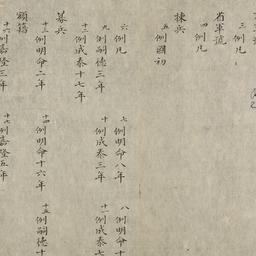 三例凡
省軍號
四例凡
揀兵
五例國初
六例凡 七例明命八年 八例明命十
九例嗣德三年 十例成泰三年 十一例成泰七
十二例成泰十七年
募兵
十三例明命二年 十四例明命十六年 十五例嗣德十
額籍
十六例嘉隆三年 十七例嘉隆五年